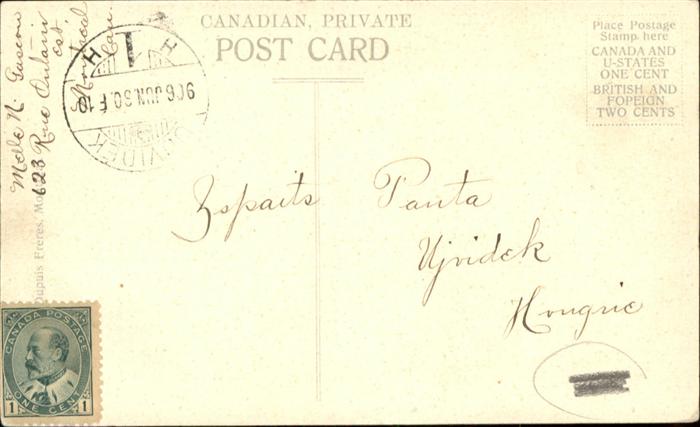 CANADIAN, PRIVATE
POST CARD
Place Postage
Stamp here
CANADA AND
U-STATES
ONE CENT
BRITISH AND
FOREIGN
TWO CENTS
Melle N. Gascon
623 Rue Ontario
Est.
Montreal
Can.
906 JUN. 30. F 12
Zspaits Panta
Ujvidek
Hongrie
Dupuis Freres,
CANADA POSTAGE
1 ONE CENT 1